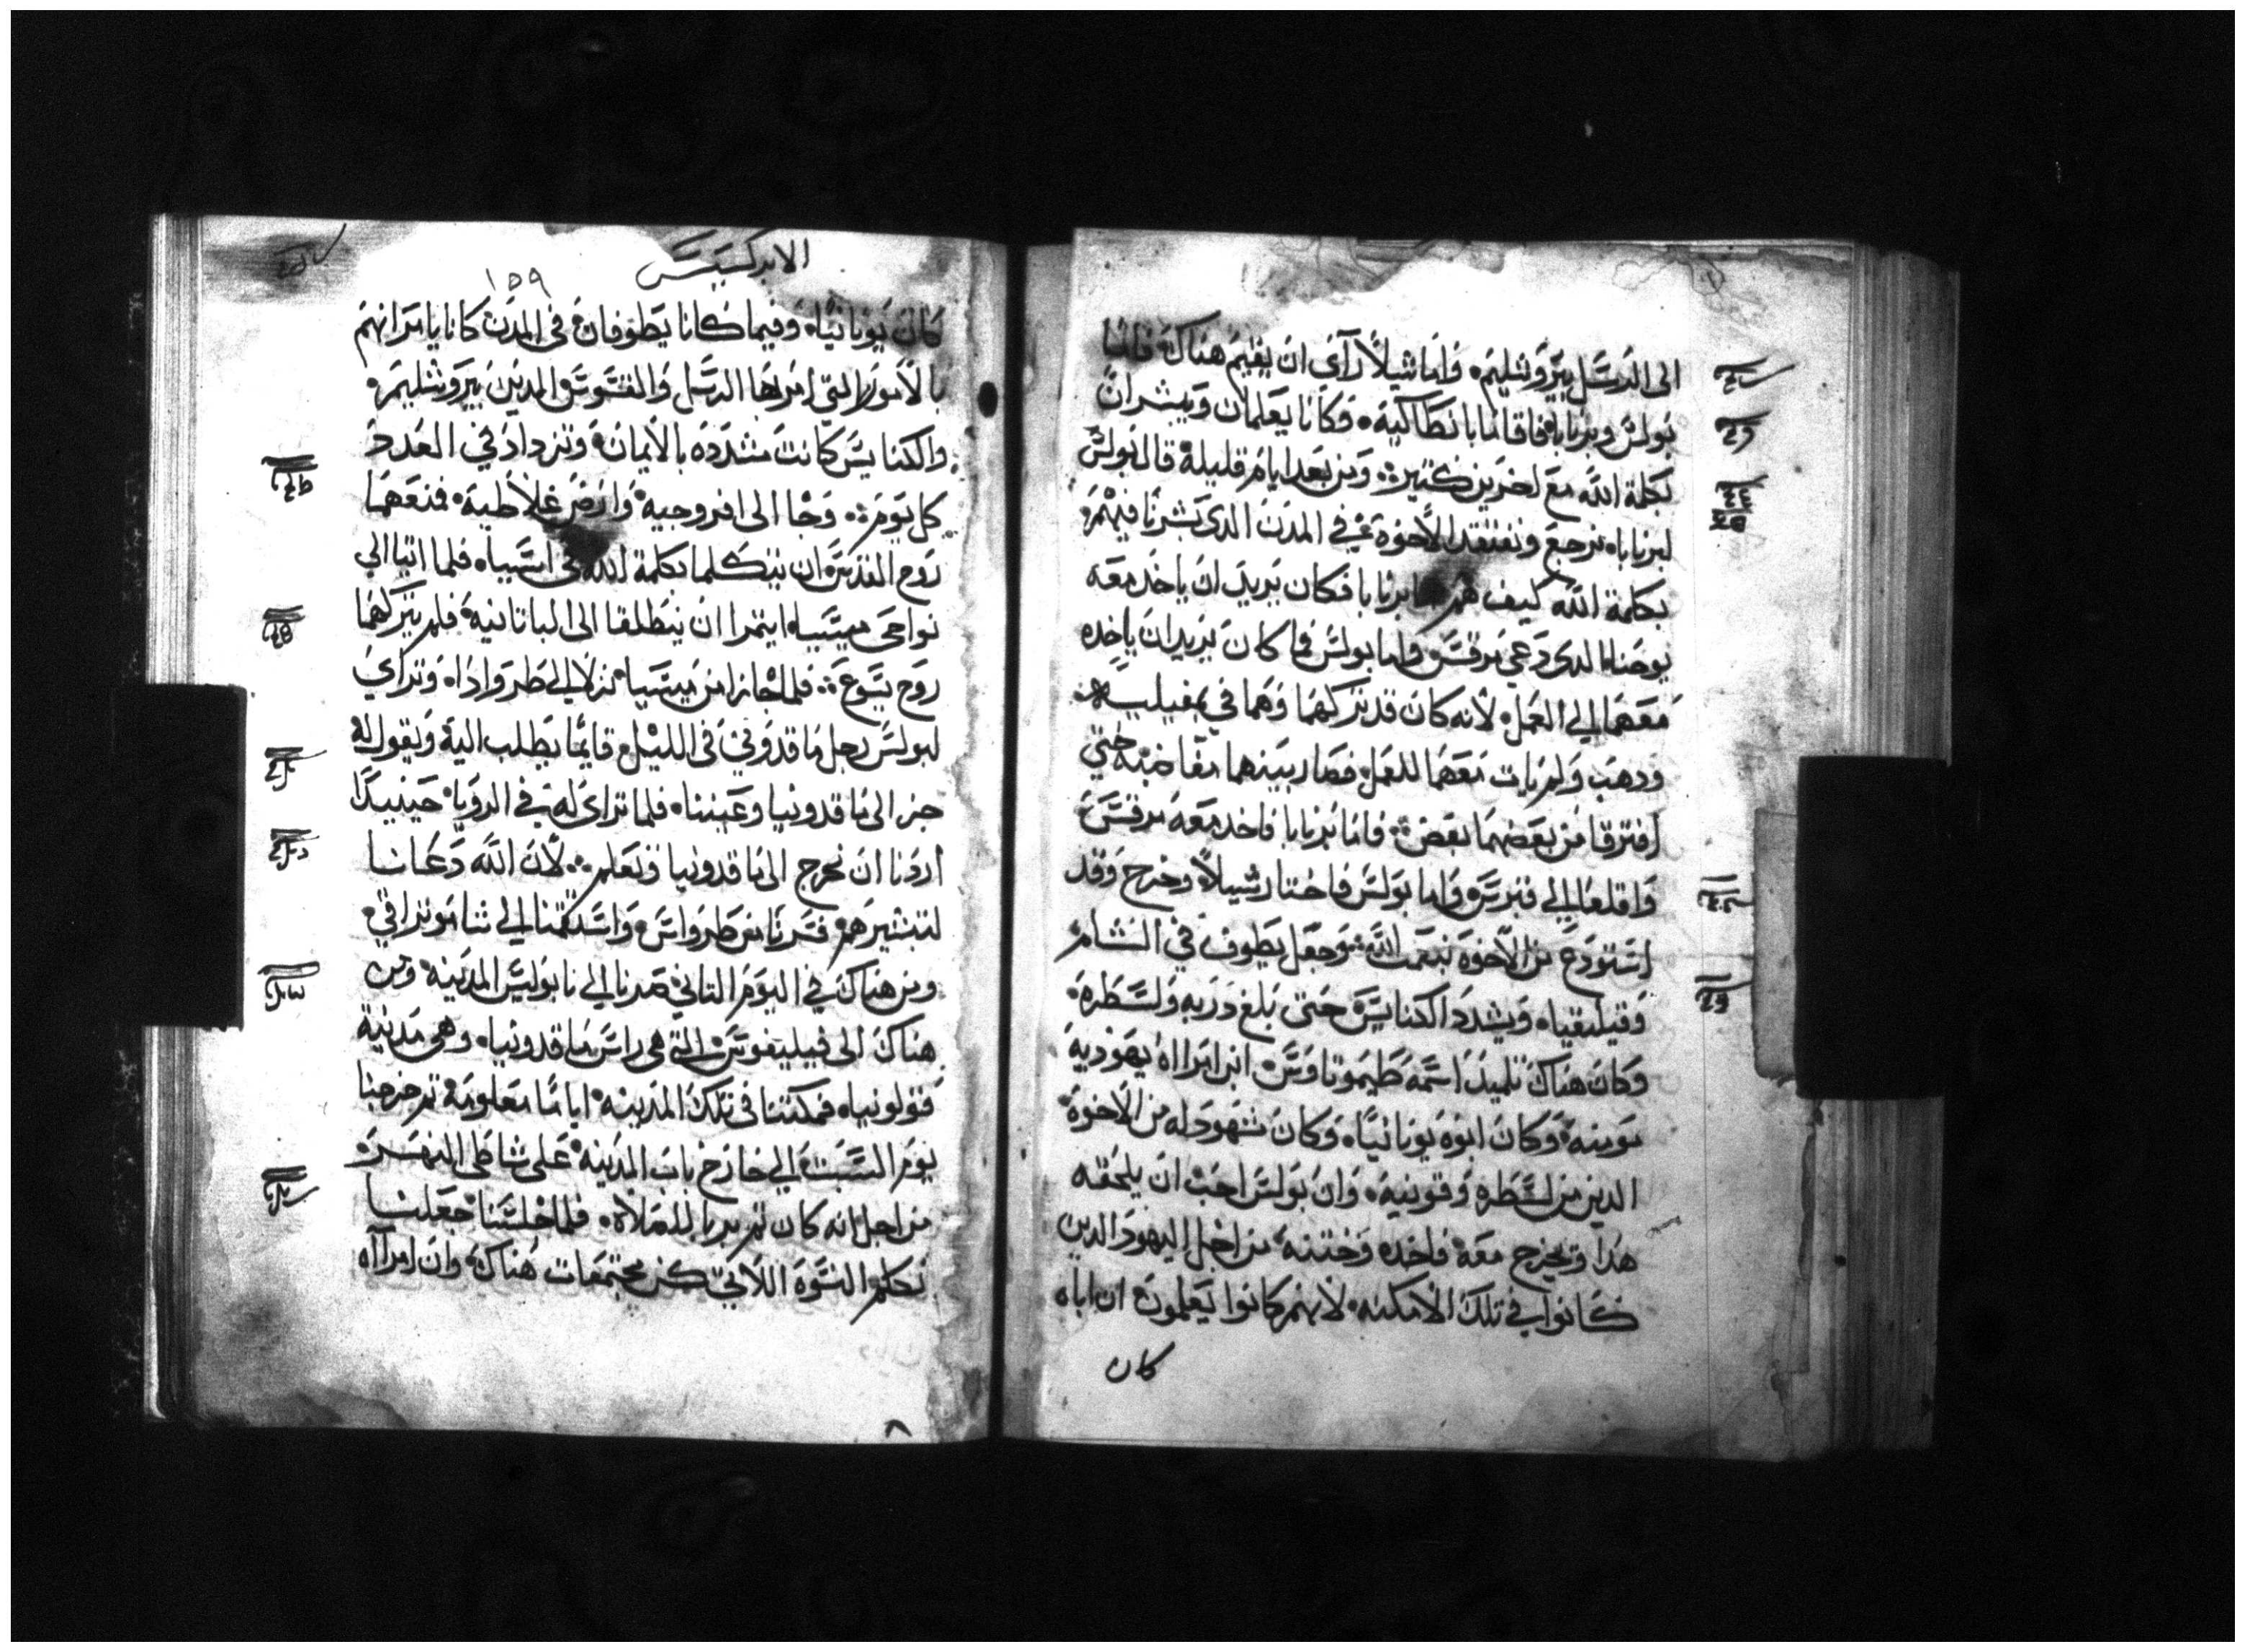 الى الرسل بيروشليم. واما شيلا رأي ان يقيم هناك فاما
بولس وبرنابا فاقاما بانطاكية. وكانا يعلمان ويبشران
بكلمة الله مع اخرين كتير. ومن بعد ايام قليلة قال بولس
لبرنابا. نرجع ونفتقد الاخوة في المدن الدى بشرنا فيهم
بكلمة الله كيف هم برنابا فكان يريد ان ياخد معه
يوحنا الدى دعي مرقس. واما بولس فما كان يريد ان ياخده
معهما الي العمل. لانه كان قد تركهما وهما في بمفيليه.
ودهب ولم يات معهما للعمل. فصار بينهما مغاضبه حتي
افترقا من بعضهما بعض. فاما برنابا فاخد معه مرقس
واقلعا الي قبرس. واما بولس فاختار شيلا وخرج وقد
استودع من الاخوة بنعمت الله. وجعل يطوف في الشام
وقيليقيا. ويشدد الكنايس حتى بلغ دربه ولسطره.
وكان هناك تلميذ اسمه طيموتاوس. ابن امراه يهودية
مومنه. وكان ابوه يونانيا. وكان شهود له من الاخوة
الدين من لسطره وقونيه. وان بولس احب ان يلحقه
هدا ويخرج معه. فاخده وختنه. من اجل اليهود الدين
كانوا في تلك الامكنه. لانهم كانوا يعلمون ان اباه
كان
الابركسيس
١٥٩
كان يونانيا. وفيما كانا يطوفان في المدن كانا يامرانهم
بالامور التي امر بها الرسل والقسوس الدين بيروشليم.
والكنايس كانت مشدده بالايمان. وتزداد في العدد
كل يوم. وجا الى افروجيه. وارض غلاطيه. فمنعهما
روح القدس ان يتكلما بكلمة الله في اسيا. فلما اتيا الي
نواحى ميسيا. ايتمرا ان ينطلقا الى الباتانية. فلم يتركهما
روح يسوع. فلما جازا من ميسيا. نزلا الي طروادا. وتراي
لبولس رجل ماقدوني في الليل. قايما يطلب اليه ويقول له
جز الى ماقدونيا وعيننا. فلما تراى له في الرويا. حينيدا
اردنا ان نخرج الى ماقدونيا ونعلم. لان الله دعانا
لتبشيرهم. فسرنا من طرواس. واستقمنا الي ثاموتراقي
ومن هناك في اليوم التاني صرنا الي نابوليس المدينه. ومن
هناك الى فيليبفوس التي هي راس ماقدونيا. وهى مدينة
قولونيا. فمكتنا في تلك المدينه. اياما معلومة. تم خرجنا
يوم السبت الي خارج باب المدينه. على شاطى النهر.
من اجل انه كان تم يرى للصلاه. فلما جلسنا جعلنا
نكلم النسوة اللاتي كن مجتمعات هناك. وان امراه